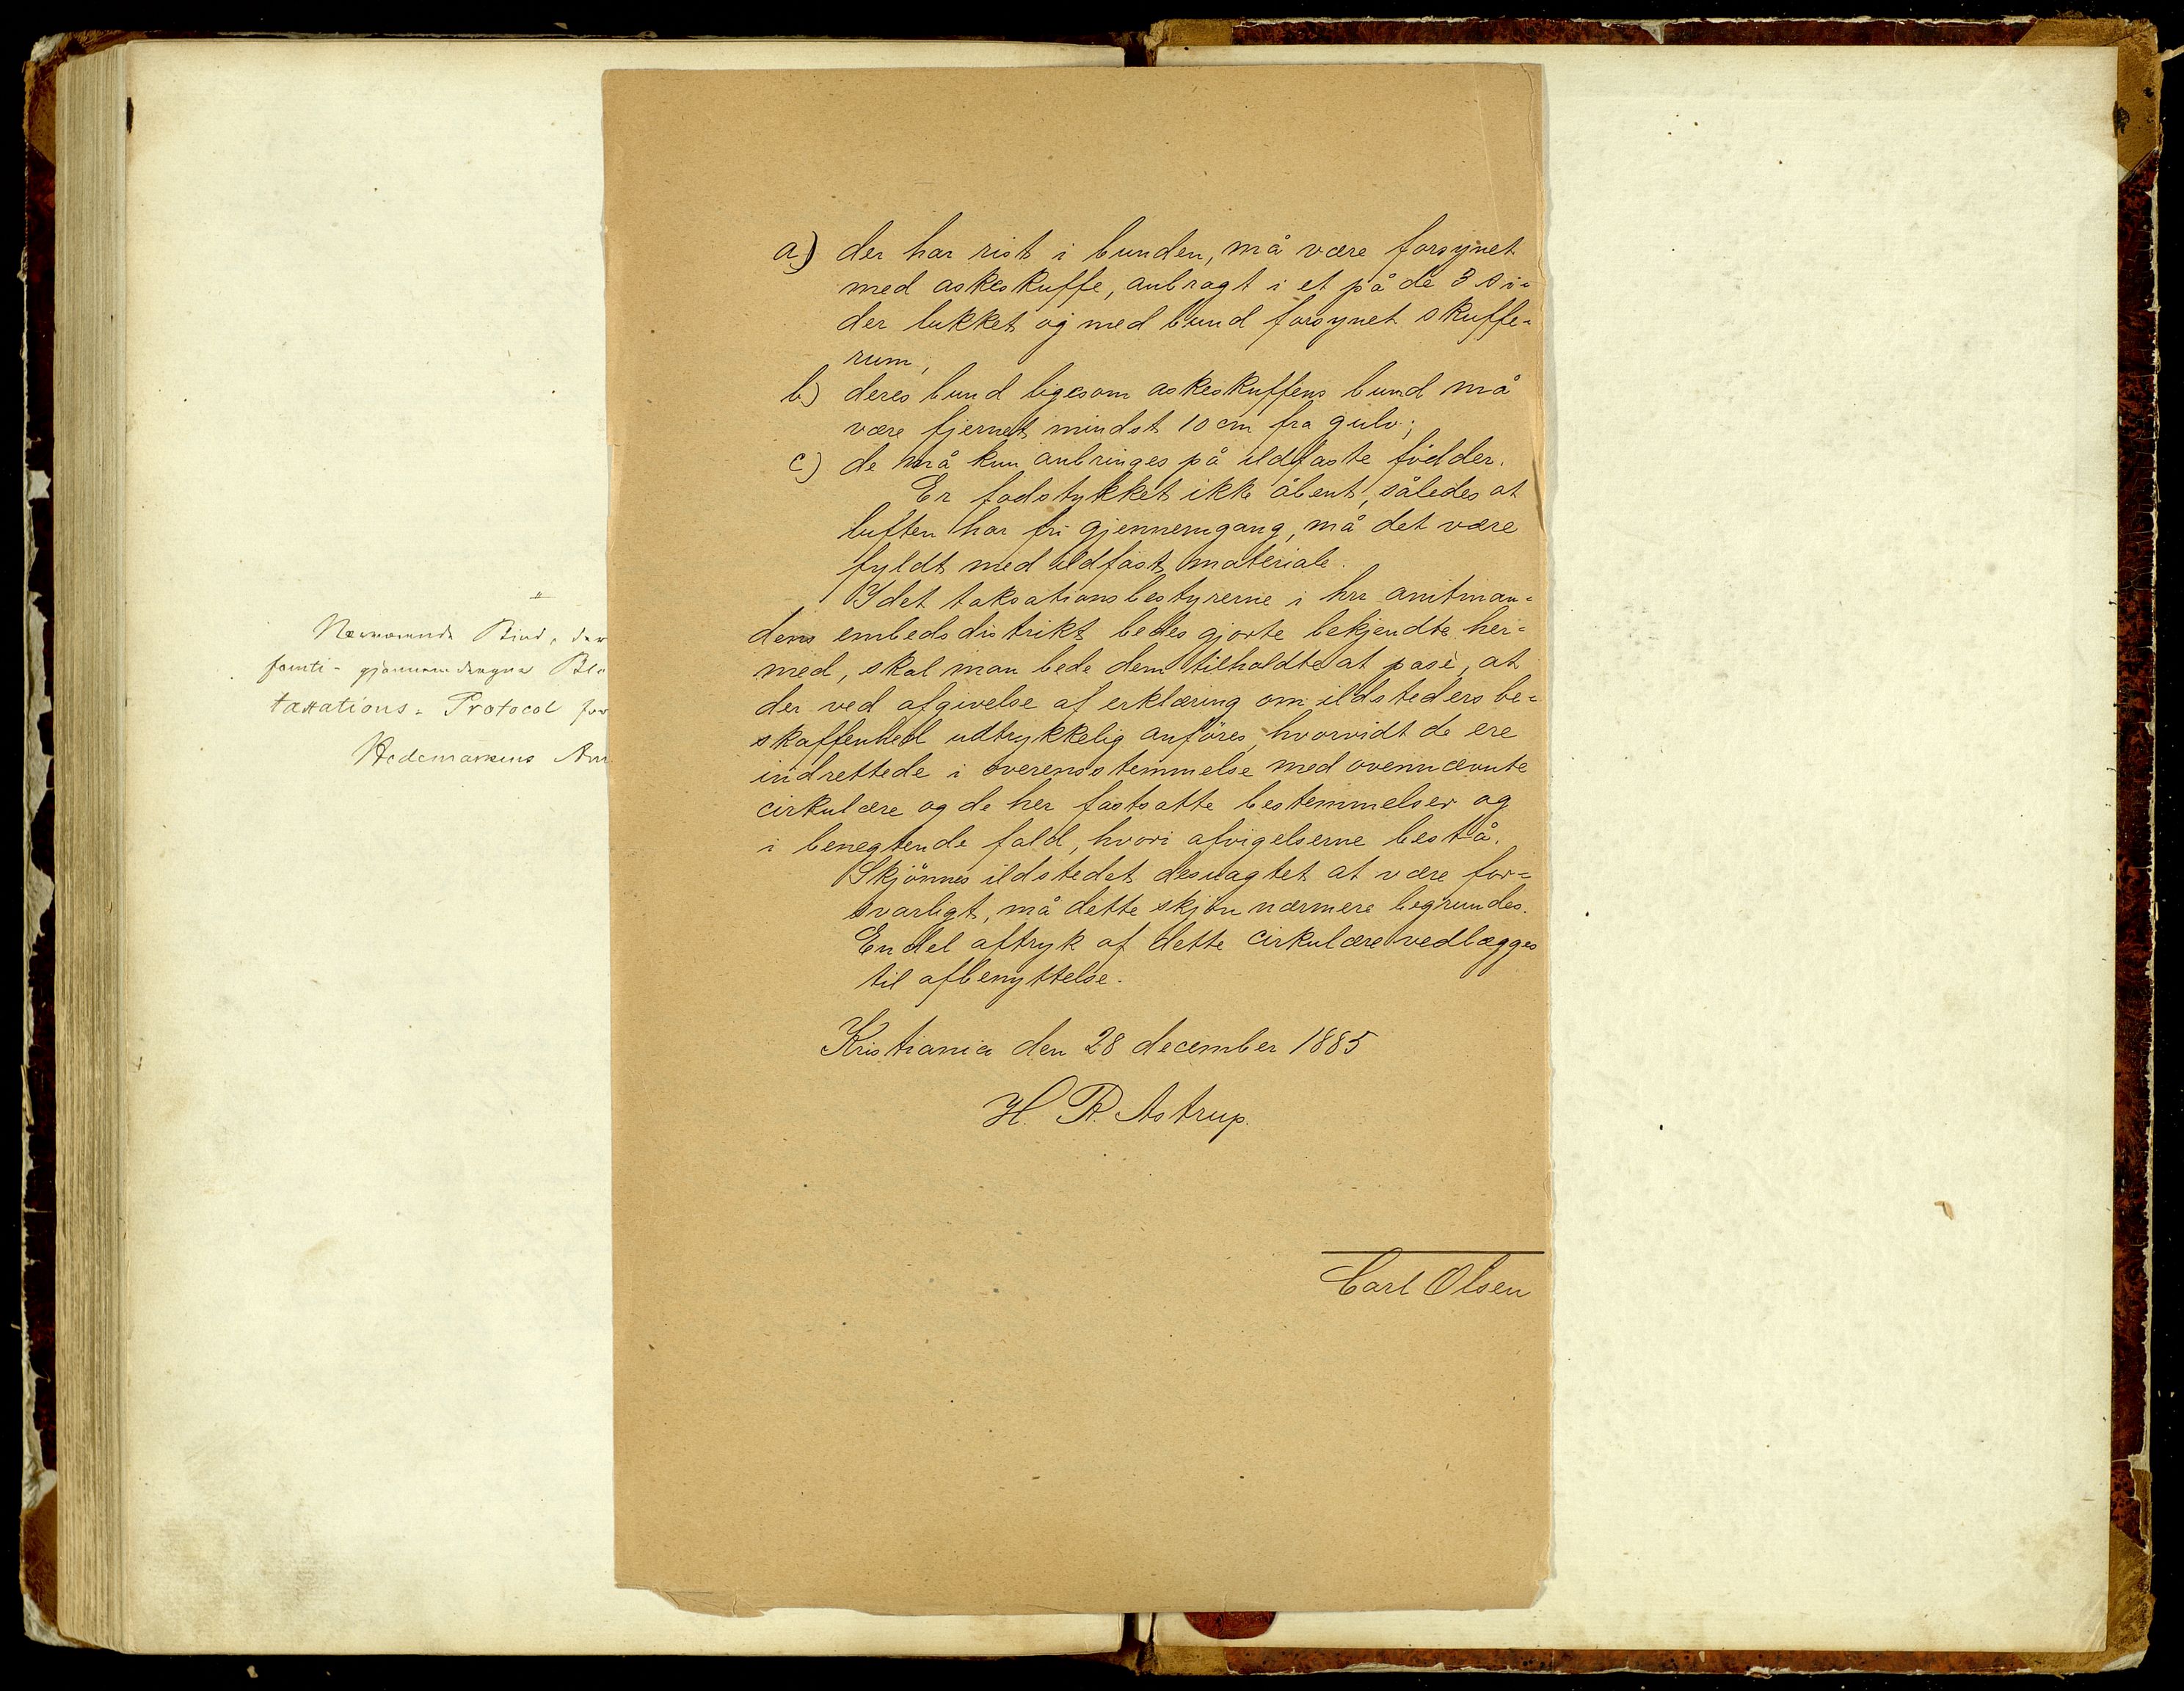 Nærværende Bind, der
taxations-Protocol for
Hedemarkens Am
a) der har rist i bunden, må være forsynet
med askeskuffe, anbragt i et på de 3 si-
der lukket og med bund forsynet skuffe-
rum;
b) deres bund ligesom askeskuffens bund må
være fjernet mindst 10 cm fra gulv;
c) de må kun anbringes på ildfaste födder.
Er fodstykket ikke åbent, således at
luften har fri gjennemgang, må det være
fyldt med ildfast materiale.
Idet taksationsbestyrerne i hrr amtman-
dens embedsdistrikt bedes gjorte bekjendte her-
med, skal man bede dem tilholdte at påse, at
der ved afgivelse af erklæring om ildsteders be-
skaffenhed udtrykkelig anföres, hvorvidt de ere
indrettede i overensstemmelse med ovennævnte
cirkulære og de her fastsatte bestemmelser og
i benegtende fald, hvori afvigelserne bestå.
Skjönnes ildstedet desuagtet at være for-
svarligt, må dette skjön nærmere begrundes.
En del aftryk af dette cirkulære vedlægges
til afbenyttelse.
Kristiania den 28 december 1885
H. R. Astrup.
Carl Olsen